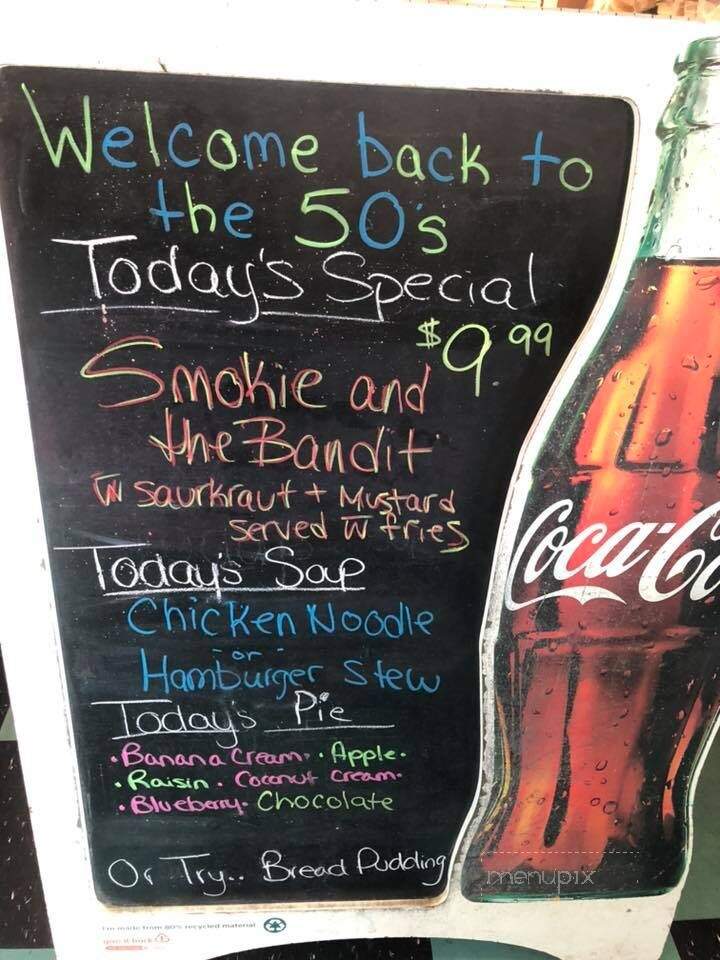 Welcome back to
the 50's
Today's Special
$9.99
Smokie and
the Bandit
W Saurkraut + Mustard
served W fries
Today's Soup
Chicken Noodle
or
Hamburger Stew
Today's Pie
• Banana Cream • Apple •
• Raisin • Coconut Cream •
• Blueberry • Chocolate
Or Try.. Bread Pudding
Coca-Co
menupix
I'm made from 80% recycled material
give it back